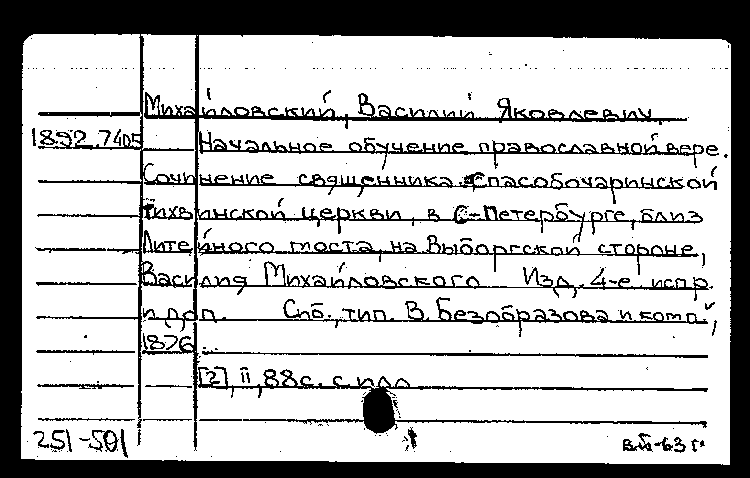 Михайловский, Василий Яковлевич.
1892.7405 Начальное обучение православной вере.
Сочинение священника Спасобочаринской
Тихвинской церкви, в С-Петербурге, близ
Литейного моста, на Выборгской стороне,
Василия Михайловского Изд. 4-е испр.
и доп. Спб., тип. В. Безобразова и комп.,
1876
[2], II, 88 с. с илл.
251-501 вб-63 г.